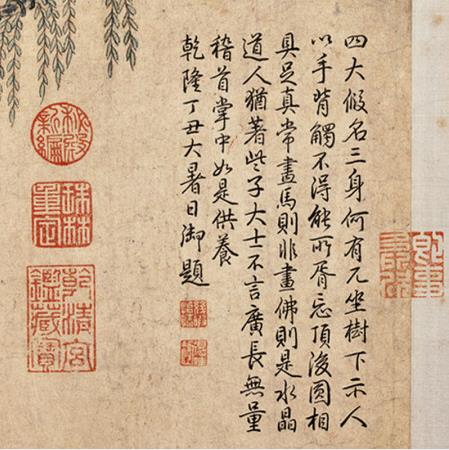 四大假名三身何有兀坐樹下示人
以手背觸不得能所胥忘頂後圓相
具足真常畫馬則非畫佛則是水晶
道人猶著些子大士不言廣長無量
稽首掌中如是供養
乾隆丁丑大暑日御題
秘殿
新編
珠林
重定
乾清宮
鑑藏寶